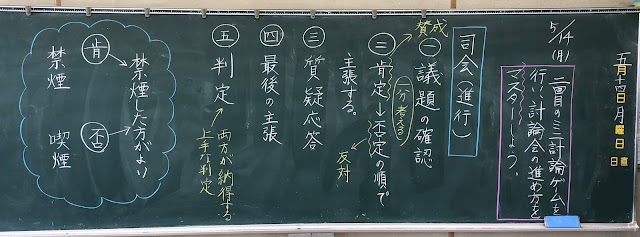 五月十四日月曜日
日直
5/14(月)
二回目のミニ討論ゲームを
行い、討論会の進め方を
マスターしよう。
司会(進行)
賛成
㊀ 議題の確認
一分考える
㊁ 肯定→否定の順で
主張する。
反対
㊂ 質疑応答
㊃ 最後の主張
㊄ 判定
両方が納得する
上手な判定
禁煙した方がよい
肯
否
禁煙
喫煙